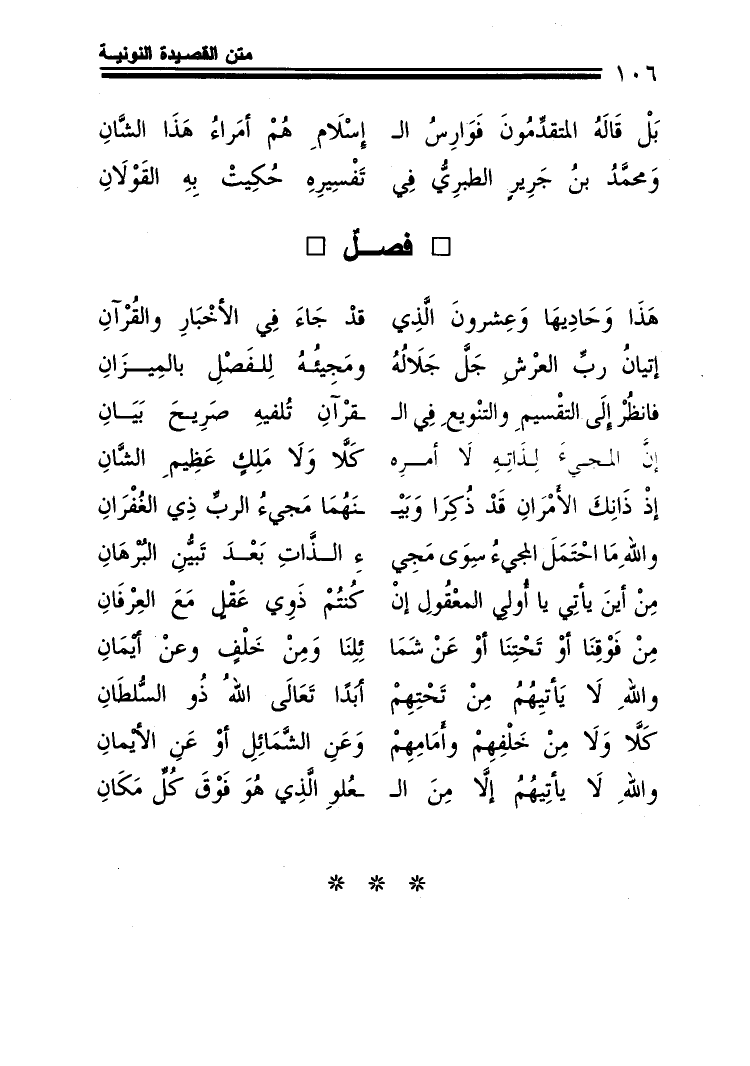 متن القصيدة النونية
١٠٦
بَلْ قَالَهُ المتقدِّمُونَ فَوَارِسُ الـ إِسْلَامِ هُمْ أمَرَاءُ هَذَا الشَّانِ
وَمحمَّدُ بنُ جَرِيرٍ الطبريُّ فِي تَفْسِيرِهِ حُكِيتْ بِهِ القَوْلَانِ
□ فصـلٌ □
هَذَا وَحَادِيهَا وَعِشرونَ الَّذِي قدْ جَاءَ فِي الأخْبَارِ والقُرْآنِ
إتيانُ ربِّ العرْشِ جَلَّ جَلَالُهُ ومَجِيئُـهُ لِلـفَصْلِ بالمِيـزَانِ
فانظُرْ إلَى التقْسِيمِ والتنْوِيعِ فِي الـ ـقرآنِ تُلفيهِ صَرِيـحَ بَيَـانِ
إنَّ المجيءَ لِـذَاتِهِ لَا أمـرِه كَلَّا وَلَا مَلِكٍ عَظِيمِ الشَّانِ
إذْ ذَانِكَ الأَمْرَانِ قَدْ ذُكِرَا وَبَيْـ ـنَهُمَا مَجيءُ الربِّ ذِي الغُفْرَانِ
واللهِ مَا احْتَمَلَ المجيءُ سِوَى مَجِي ءِ الـذَّاتِ بَعْـدَ تَبَيُّنِ البُرْهَانِ
مِنْ أينَ يأتِي يا أُولي المعْقُولِ إنْ كُنتُمْ ذَوِي عَقْلٍ مَعَ العِرْفَانِ
مِنْ فَوْقِنَا أوْ تَحْتِنَا أوْ عَنْ شَمَا ئِلِنَا وَمِنْ خَلْفٍ وعنْ أيْمَانِ
واللهِ لَا يَأتيهُمُ مِنْ تَحْتِهِمْ أبَدًا تَعَالَى اللهُ ذُو السُّلطَانِ
كَلَّا وَلَا مِنْ خَلْفِهِمْ وأَمَامِهِمْ وَعَنِ الشَّمَائِلِ أوْ عَنِ الأَيْمانِ
واللهِ لَا يأتِيهُمُ إلَّا مِنَ الـ ـعُلوِ الَّذِي هُوَ فَوْقَ كُلِّ مَكَانِ